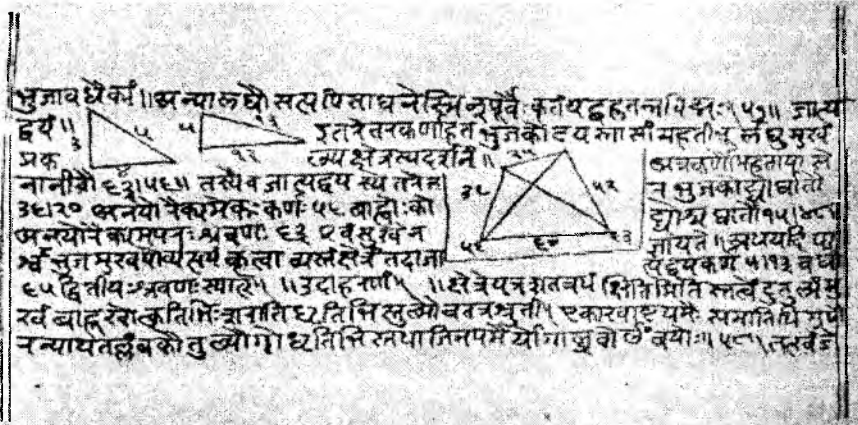 भुजावधैक्यं॥ अन्यालघौ सत्यपि साधनेस्मिन्पूर्वैः कृतंयद्गुहुतन्नविद्मः॥५७॥ जात्य
द्वयं॥ ३ ५ ५ १३ इतरेतरकर्णाहत भुजकोटय स्तासां महतीभू र्लघु मुखं
प्रक ४ १२ ल्प्य क्षेत्रस्य दर्शनं॥ २५ अत्रकर्णौमहतायासे
नानीतौ ६३।५६॥ तस्यैव जात्यद्वय स्येतरेत ३९ ५२ र भुजकोट्योर्घातौ
३६।२० अनयोरैक्यमेकः कर्णः ५६ बाह्वोः को ट्योश्च घातौ १५।४८
अनयोरैक्यमपरः श्रवणः ६३ एवं सुखेन ५६ ६० ६३ ज्ञायते॥ अथयदि पा
र्श्वभुजमुखयोर्व्यत्ययं कृत्वा न्यस्तंक्षेत्रं तदाजा त्यद्वयकर्ण ५।१३ वधो
६५ द्वितीयः श्रवणः स्यात्॥ ॥उदाहरणं॥ ॥क्षेत्रेयत्रशतत्रयं क्षितिमिति स्तत्वेंदुतुल्यंमु
खं बाहूखोत्कृतिभिः शरातिधृतिभिस्तुल्यौचतत्रश्रुती। एकाखाष्टयमैः समातिथिगुणै
रन्याथतल्लंबकौतुल्यौगोधृतिभिस्तथाजिनयमैर्योगाच्छ्रवोर्लंबयोः॥५८॥ तत्खंडे